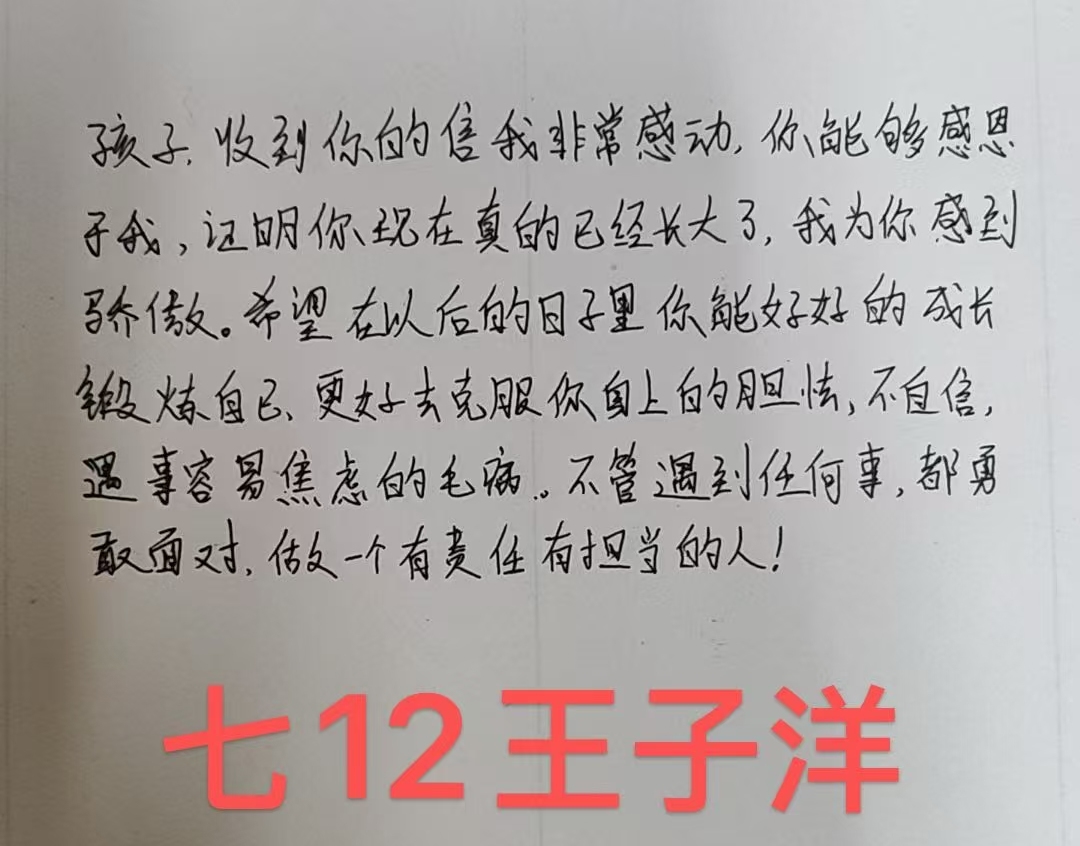 孩子,收到你的信我非常感动,你能够感恩
于我,证明你现在真的已经长大了,我为你感到
骄傲。希望在以后的日子里你能好好的成长
锻炼自己,更好去克服你自上的胆怯,不自信,
遇事容易焦虑的毛病。不管遇到任何事,都勇
敢面对,做一个有责任有担当的人!
七12王子洋